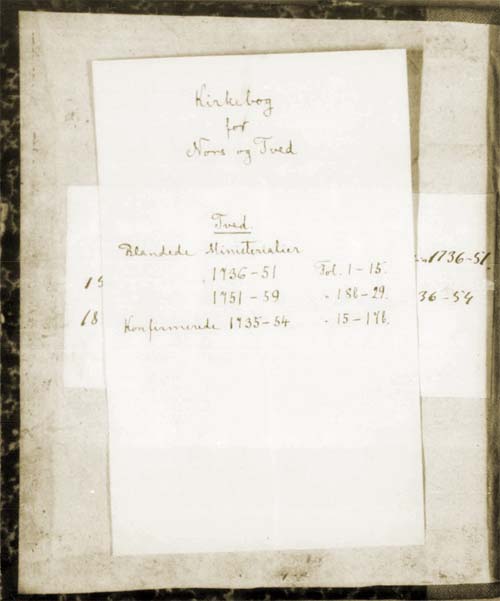 Kirkebog
for
Nors og Tved
Tved.
Blandede Ministerialier
1736-51 Fol. 1-15.
1751-59 " 18b-29.
Konfirmerede 1735-54 " 15-17b.
1736-51.
36-54